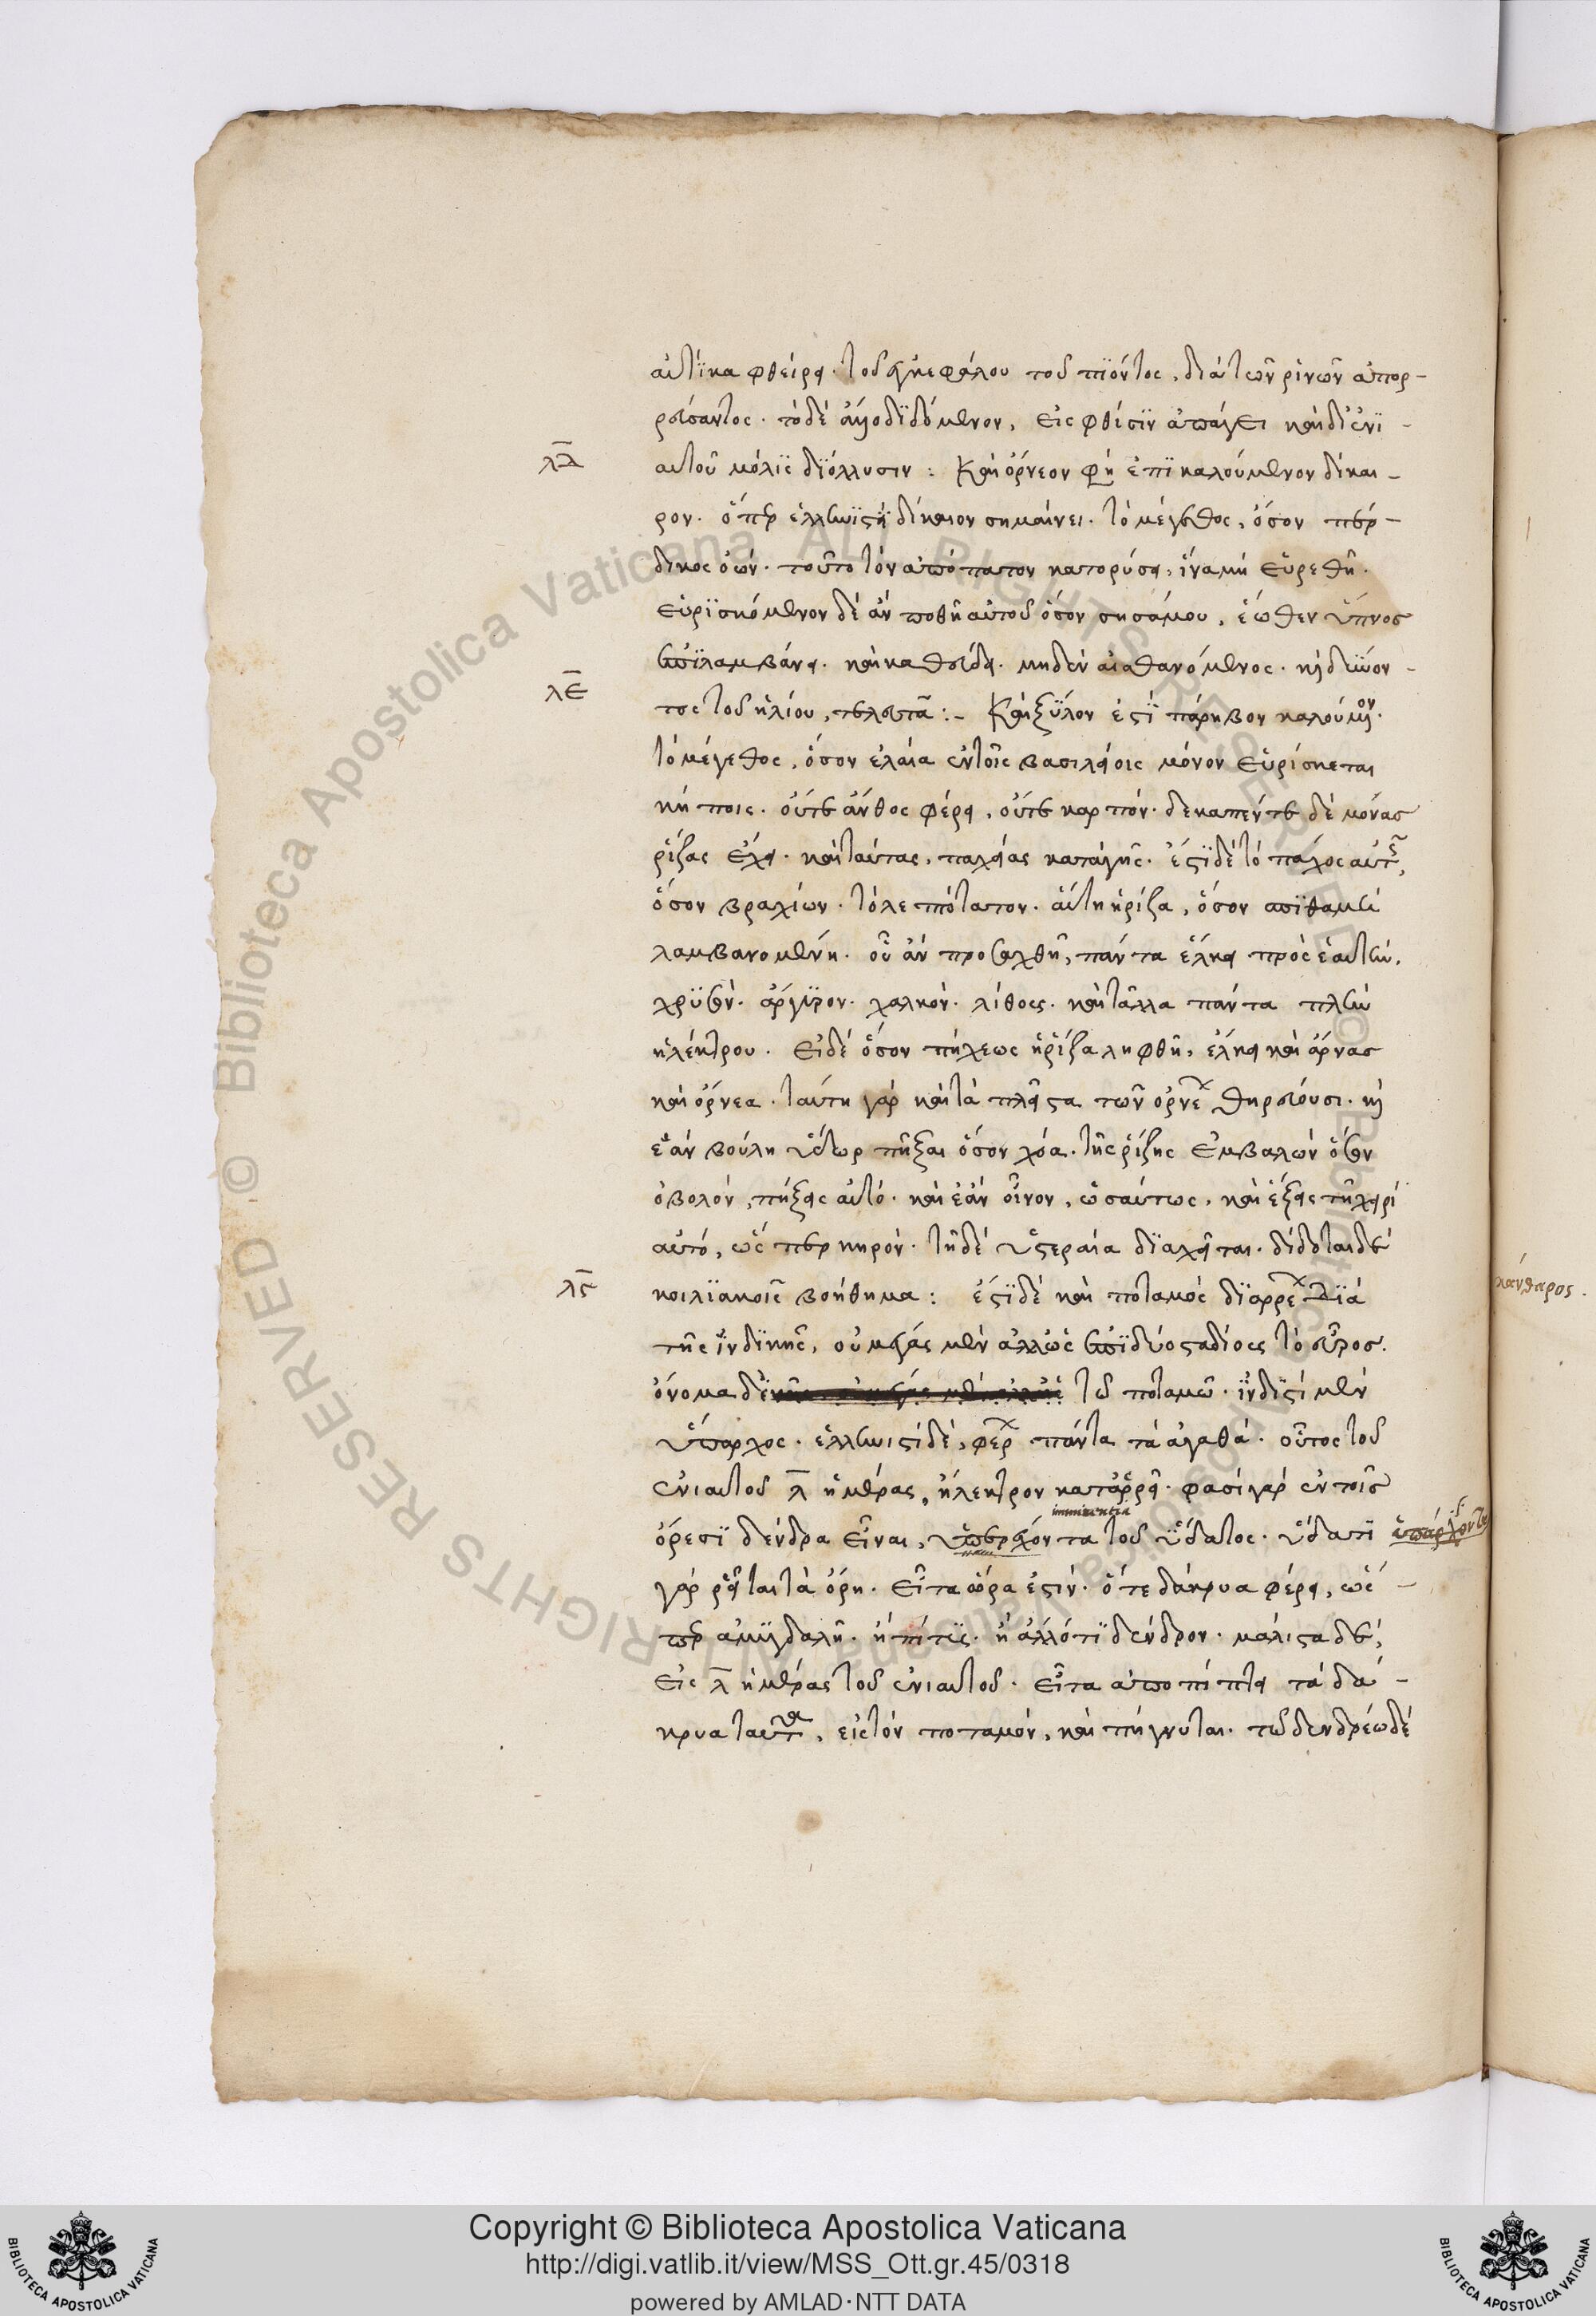 αὐτίκα φθείρει τοῦ ἐγκεφάλου τοῦ πϊόντος, διὰ τῶν ῥινῶν ἀπορ-
ρεύσαντος. τὸ δὲ διδόμενον, εἰς φθίσϊν ἀπάγει καὶ δι' ἐνϊ-
λδ
αυτοῦ μόλϊς δϊόλλυσιν: Καὶ ὄρνεον φη ἐπϊκαλούμενον δίκαι-
ρον. ὅπερ ἑλληνϊστὶ δίκαιον σημαίνει. τὸ μέγεθος, ὅσον πέρ-
δικος ὠόν. τοῦτο τὸν ἀπόπατον κατορύσει, ἵνα μὴ εὑρεθῆ.
εὑρϊσκόμενον δὲ ἂν ποθῆ αὐτοῦ ὅσον σησάμου, ἕωθεν ὕπνος
ἐπϊλαμβάνει. καὶ καθεύδει. μηδὲν αἰσθανόμενος. καὶ δύνον-
λε
τος τοῦ ἡλίου, τελευτᾶ:- Καὶ ξύλον ἐστὶ πάρηβον καλούμενον.
τὸ μέγεθος, ὅσον ἐλαία ἐν τοῖς βασιλείοις μόνον εὑρίσκεται
κήποις. οὔτε ἄνθος φέρει, οὔτε καρπόν. δεκαπέντε δὲ μόνας
ῥίζας ἔχει. καὶ ταύτας, παχείας κατὰ γῆς. ἔστϊ δὲ τὸ πάχος αὐτῆς,
ὅσον βραχίων. τὸ λεπτότατον. αὕτη ἡ ῥίζα, ὅσον σπϊθαμὴ
λαμβανομένη. οὗ ἂν προσαχθῆ, πάντα ἕλκει πρὸς ἑαυτήν.
χρϋσόν. ἄργϋρον. χαλκόν. λίθους. καὶ τἄλλα πάντα πλὴν
ἠλέκτρου. Εἰ δὲ ὅσον πήχεως ἡ ῥίζα ληφθῆ, ἕλκει καὶ ἄρνας
καὶ ὄρνεα. ταύτη γὰρ καὶ τὰ πλεῖστα τῶν ὀρνέων θηρεύουσι. καὶ
ἐὰν βούλη ὕδωρ πῆξαι ὅσον χόα. τῆς ῥίζης ἐμβαλὼν ὅσον
ὀβολόν, πήξεις αὐτό. καὶ ἐὰν οἶνον, ὡσαύτως. καὶ ἕξεις τῆ χειρὶ
αὐτό, ὥσπερ κηρόν. τῆ δὲ ὑστεραία δϊαχεῖται. δίδοται δὲ
λϛ
κοιλϊακοῖς βοήθημα: ἔστϊ δὲ καὶ ποταμὸς δϊαρρέων δϊὰ
κάνθαρος.
τῆς ἰνδϊκῆς, οὐ μέγας μὲν ἀλλ' ὡς ἐπϊ δύο σταδίους τὸ εὖρος.
ὄνομα δὲ τῶ ποταμῶ. ἰνδϊστὶ μὲν
ὕπαρχος. ἑλληνιστὶ δέ, φέρων πάντα τὰ ἀγαθά. οὗτος τοῦ
ἐνιαυτοῦ λ ἡμέρας, ἤλεκτρον καταρρεῖ. φασὶ γὰρ ἐν τοῖς
imminentia
ὄρεσϊ δένδρα εἶναι, ὑπερέχοντα τοῦ ὕδατος. ὕδατϊ
γὰρ ῥεῖται τὰ ὄρη. εἶτα ὥρα ἐστίν. ὅτε δάκρυα φέρει, ὥσ-
περ ἀμϋγδαλῆ. ἢ πίτϋς. ἢ ἄλλό τϊ δένδρον. μάλιστα δὲ,
εἰς λ ἡμέρας τοῦ ἐνιαυτοῦ. εἶτα ἀποπίπτει τὰ δά-
κρυα ταῦτα, εἰς τὸν ποταμόν, καὶ πήγνυται. τῶ δενδρέω δὲ
Copyright © Biblioteca Apostolica Vaticana
http://digi.vatlib.it/view/MSS_Ott.gr.45/0318
powered by AMLAD·NTT DATA